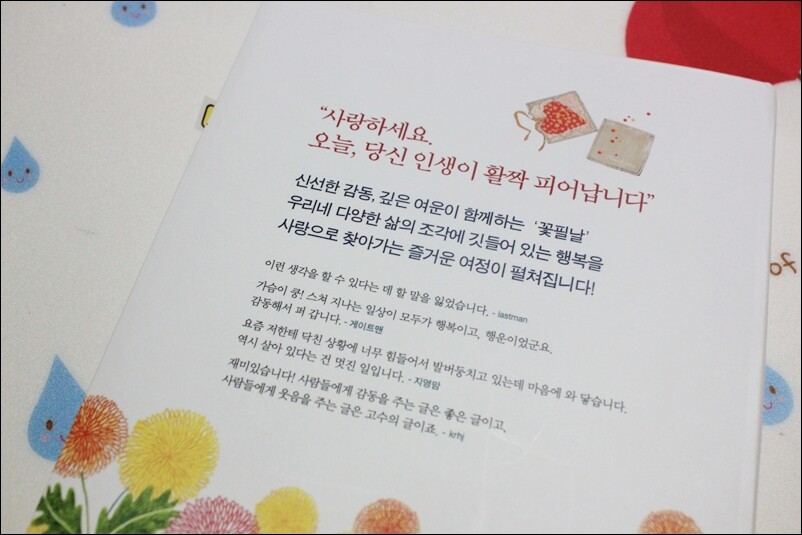 “사랑하세요.
오늘, 당신 인생이 활짝 피어납니다”
신선한 감동, 깊은 여운이 함께하는 ‘꽃필날’
우리네 다양한 삶의 조각에 깃들어 있는 행복을
사랑으로 찾아가는 즐거운 여정이 펼쳐집니다!
이런 생각을 할 수 있다는 데 할 말을 잃었습니다. - iastman
가슴이 쿵! 스쳐 지나는 일상이 모두가 행복이고, 행운이었군요.
감동해서 퍼 갑니다. - 게이트맨
요즘 저한테 닥친 상황에 너무 힘들어서 발버둥치고 있는데 마음에 와 닿습니다.
역시 살아 있다는 건 멋진 일입니다. - 지영맘
재미있습니다! 사람들에게 감동을 주는 글은 좋은 글이고,
사람들에게 웃음을 주는 글은 고수의 글이죠. - krhj
of